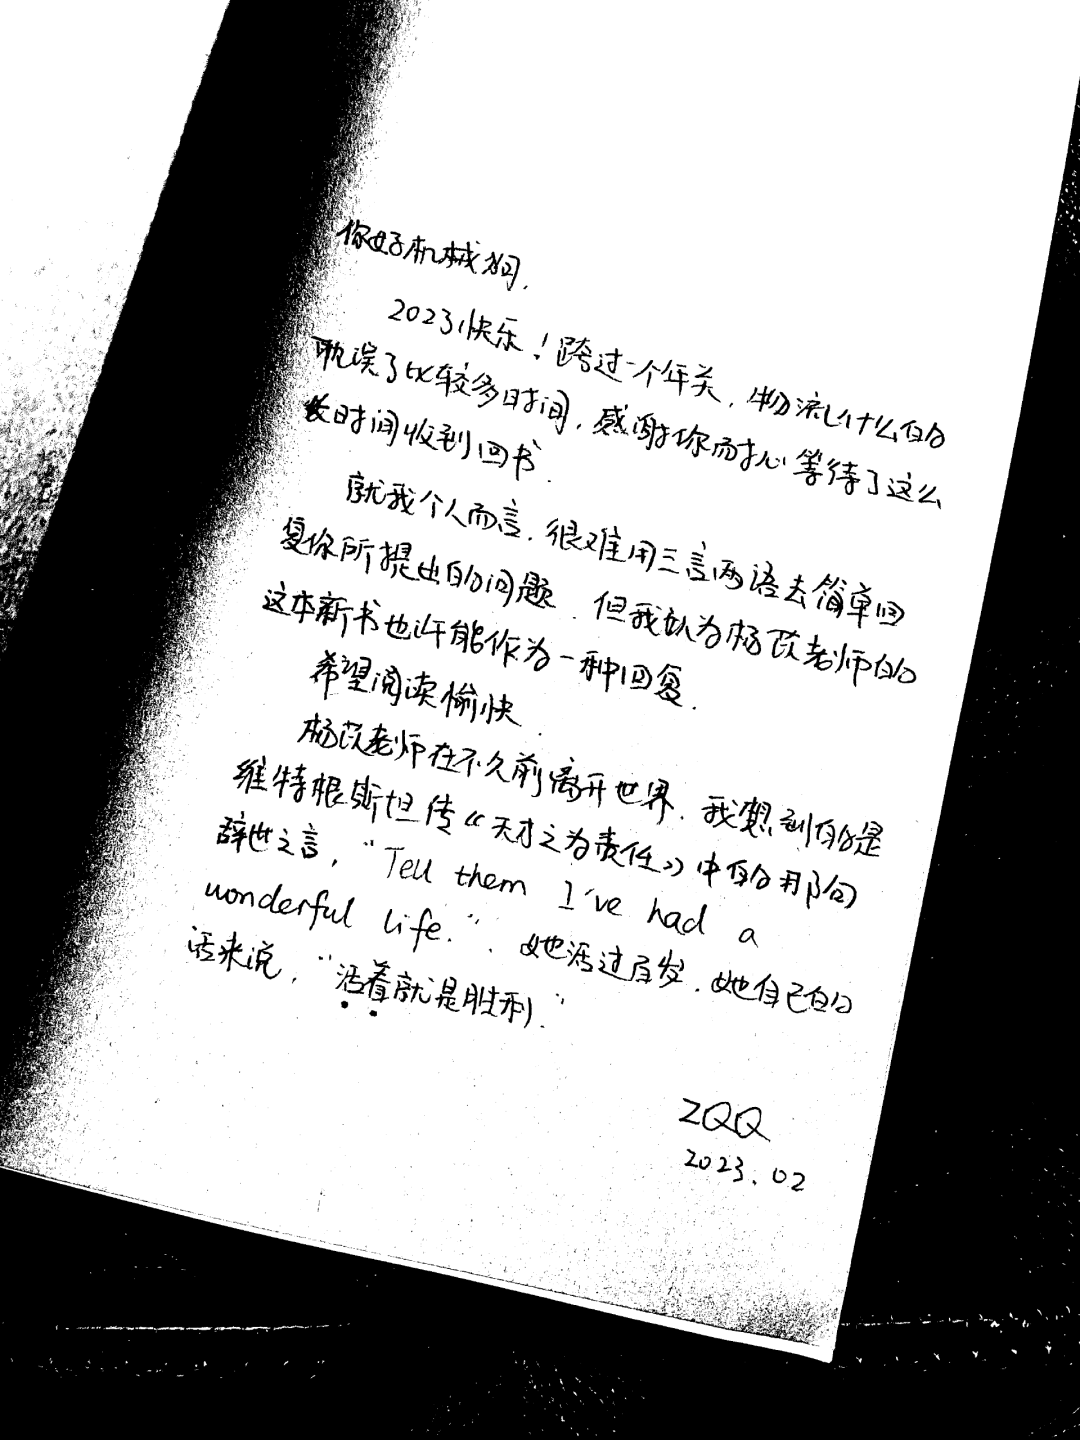 你好机械狗,
2023快乐！跨过一个年关，物流什么的
耽误了比较多时间，感谢你耐心等待了这么
长时间收到回书.
就我个人而言，很难用三言两语去简单回
复你所提出的问题. 但我认为杨苡老师的
这本新书也许能作为一种回复.
希望阅读愉快.
杨苡老师在不久前离开世界. 我想到的是
维特根斯坦传《天才之为责任》中的那句
辞世之言, “Tell them I've had a
wonderful life.”. 她活过百岁. 她自己的
话来说, “活着就是胜利.”
ZQQ
2023.02